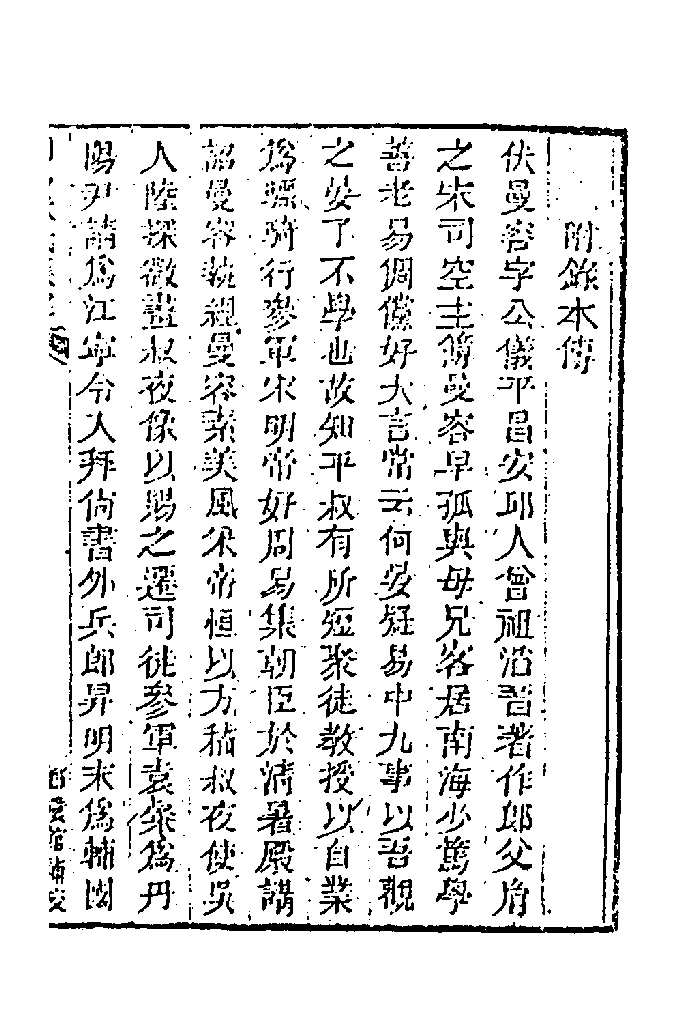 附錄本傳
伏曼容字公儀平昌安邱人曾祖滔晉著作郎父膺
之宋司空主簿曼容早孤與母兄客居南海少篤學
善老易倜儻好大言常云何晏疑易中九事以吾觀
之晏了不學也故知平叔有所短聚徒教授以自業
為驃騎行參軍宋明帝好周易集朝臣於清暑殿講
詔曼容執經曼容素美風采帝恒以方嵇叔夜使吳
人陸探微畫叔夜像以賜之遷司徒參軍袁粲為丹
陽尹請為江寧令入拜尚書外兵郎昇明末為輔國